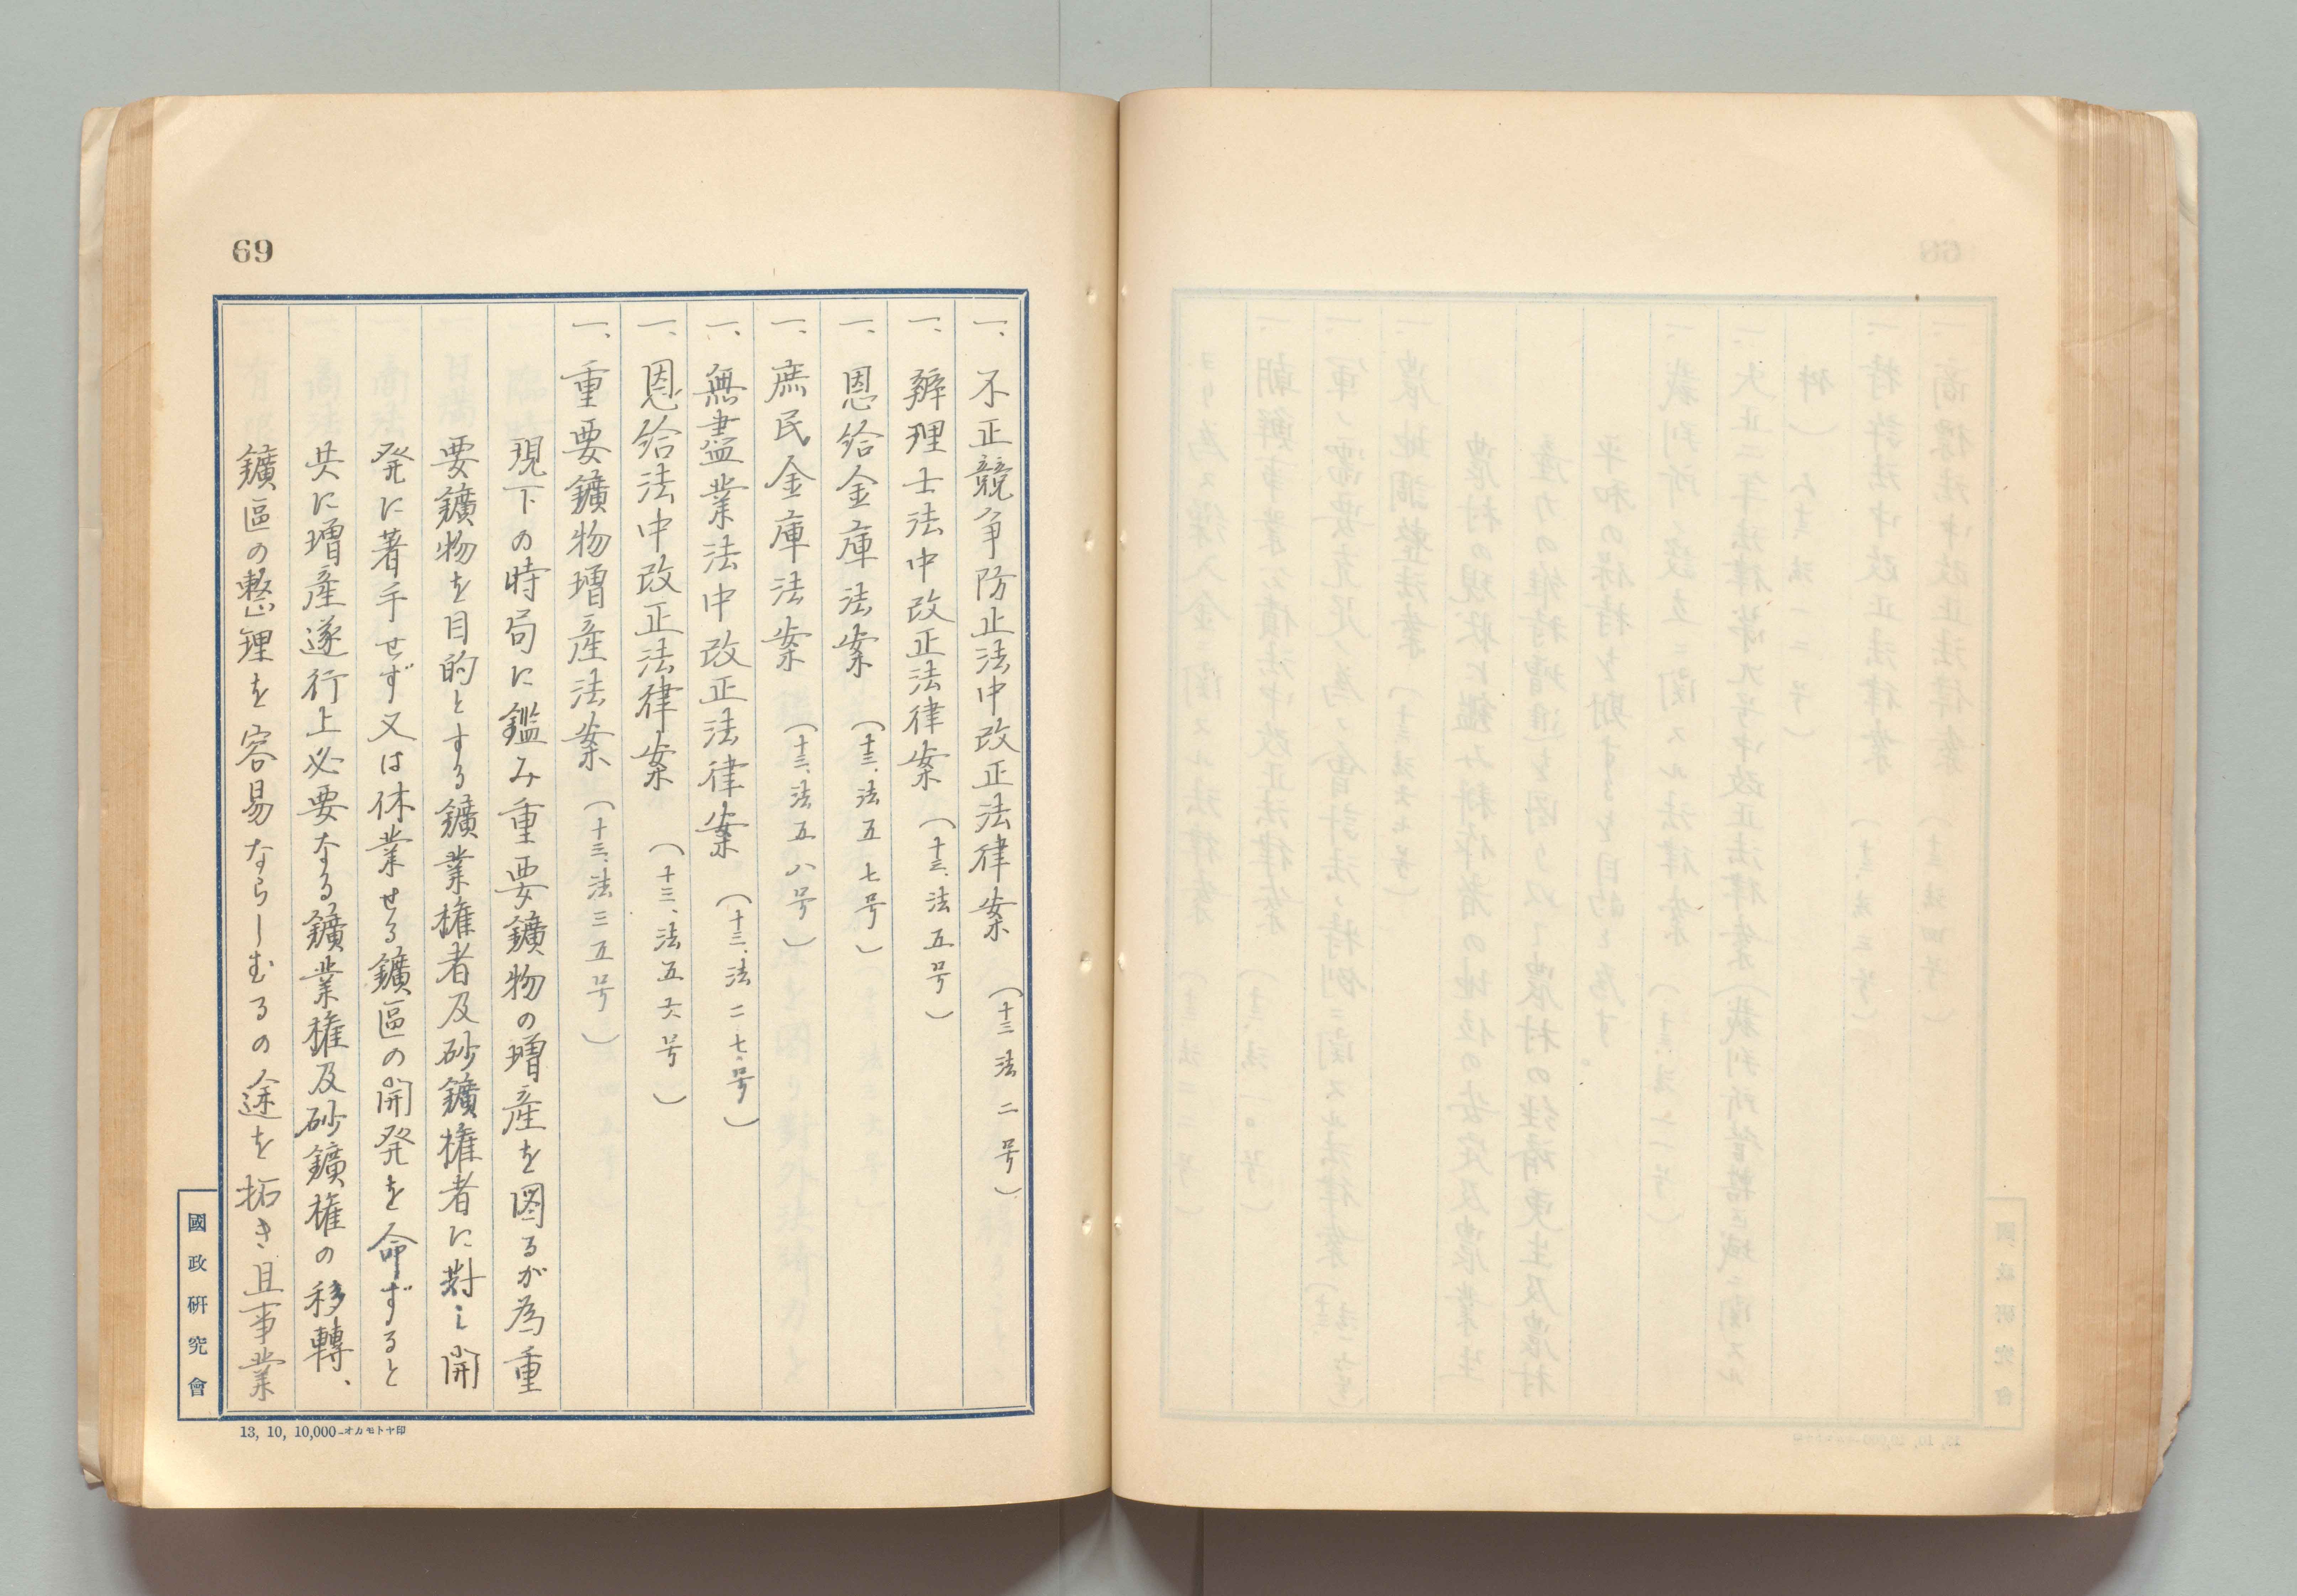 69
一、不正競争防止法中改正法律案（十三法二号）
一、辨理士法中改正法律案（十三、法五号）
一、恩給金庫法案（十三、法五七号）
一、庶民金庫法案（十三、法五八号）
一、無盡業法中改正法律案（十三、法二七号）
一、恩給法中改正法律案（十三、法五六号）
一、重要鑛物増産法案（十三、法三五号）
現下の時局に鑑み重要鑛物の増産を図るが為重
要鑛物を目的とする鑛業権者及砂鑛権者に対し開
発に著手せず又は休業せる鑛區の開発を命ずると
共に増産遂行上必要なる鑛業権及砂鑛権の移轉、
鑛區の整理を容易ならしむるの途を拓き且事業
國政研究會
13, 10, 10,000-オカモトヤ印